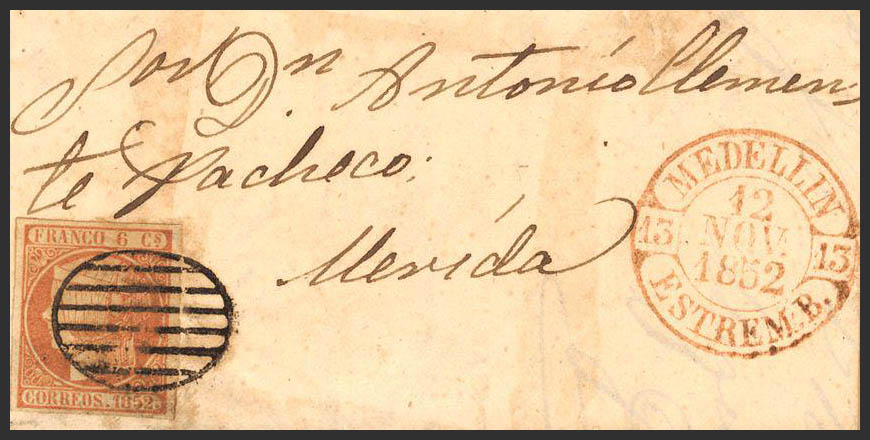 Sor Dn. Antonio Clemen
te Pacheco.
Merida
MEDELLIN
12
NOV.
1852
13
13
ESTREM.B.
FRANCO 6 Cs
CORREOS. 1852